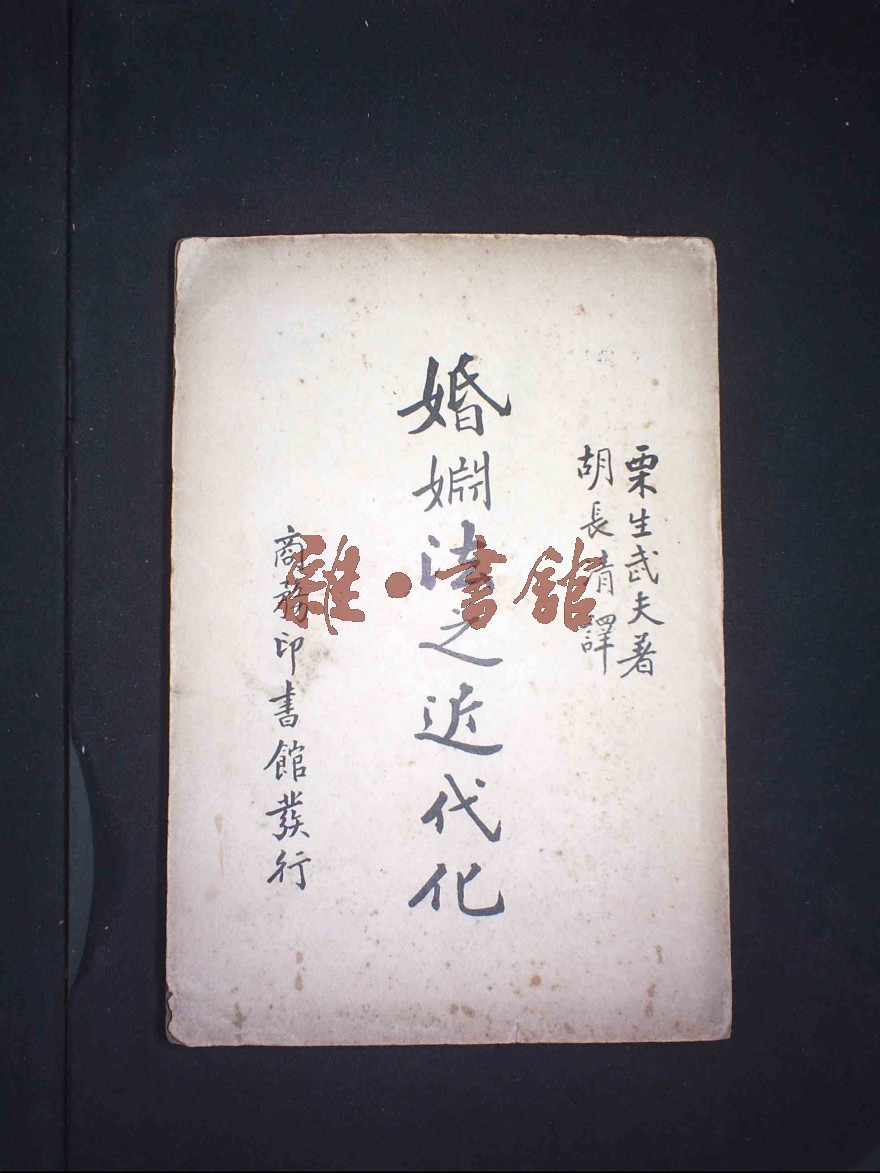 栗生武夫著
胡長清譯
婚姻法之近代化
商務印書館發行
雜·書館